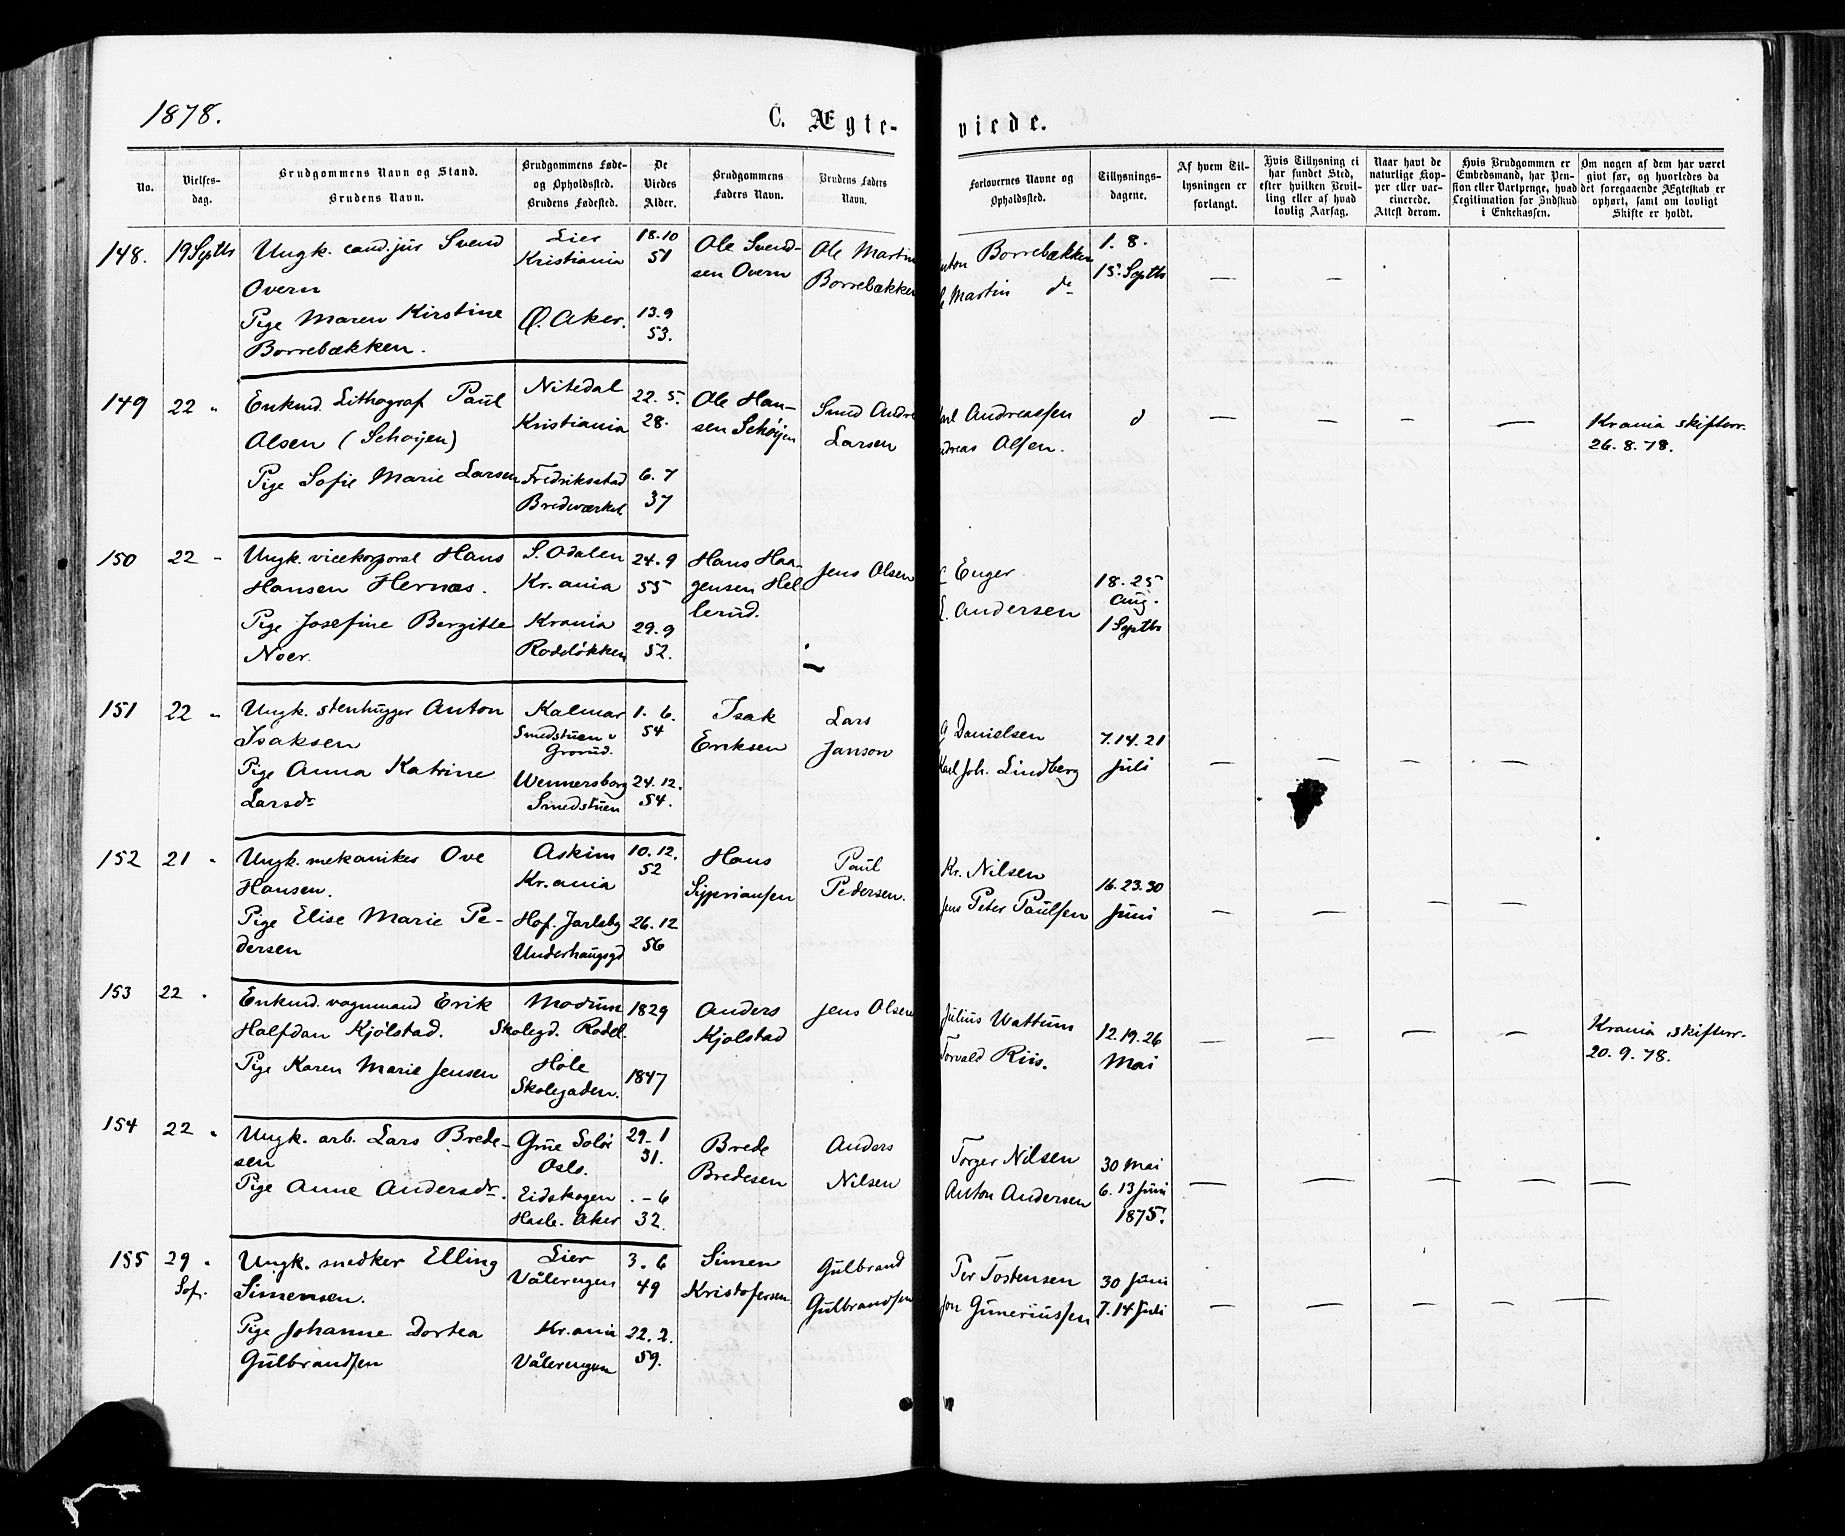 1878.
C. Ægte-
viede.
No.
Vielses-
dag.
Brudgommens Navn og Stand.
Brudens Navn.
Brudgommens Føde-
og Opholdssted.
Brudens Fødested.
De
Viedes
Alder.
Brudgommens
Faders Navn.
Brudens Faders
Navn.
Forlovernes Navne og
Opholdssted.
Tillysnings-
dagene.
Af hvem Til-
lysningen er
forlangt.
Hvis Tillysning ei
har fundet Sted,
efter hvilken Bevil-
ling eller af hvad
lovlig Aarsag.
Naar havt de
naturlige Kop-
per eller vac-
cinerede.
Attest derom.
Hvis Brudgommen er
Embedsmand, har Pen-
sion eller Vartpenge, hvad
Legitimation for Indskud
i Enkekassen.
Om nogen af dem har været
givt før, og hvorledes da
det foregaaende Ægteskab er
ophørt, samt om lovligt
Skifte er holdt.
148. 19 Septbr
Ungk. cand. jur Svend
Overn
Pige Maren Kirstine
Borrebækken.
Lier
Kristiania
Ø. Aker.
18.10
51
13.9
53.
Ole Svend-
sen Overn
Ole Martin
Borrebækken
Borrebækken
Martin do
1. 8.
15. Septbr
149 22 "
Enkmd. Lithograf Paul
Olsen (Schøyen)
Pige Sofie Marie Larsen
Nitedal
Kristiania
Fredriksstad
Bredeværket
22. 5.
28.
6. 7
37
Ole Han-
sen Schøyen
Larsen
Andreassen
Olsen.
Krania skifterr.
26.8.78.
150 22 -
Ungk. vicekorporal Hans
Hansen Hernæs.
Pige Josefine Bergitte
Noer.
S. Odalen
Kr.ania
Krania
Rodeløkken
24.9
55
29.9
52.
Hans Haa-
gensen Hel
lerud.
Jens Olsen
Enger
Andersen
18. 25
Aug.
1 Septbr
151 22 "
Ungk. stenhugger Anton
Isaksen
Pige Anna Katrine
Larsdr
Kalmar
Smedstuen v
Grorud.
Wennersborg
Smedstuen
1. 6.
54
24.12.
54.
Isak
Eriksen
Lars
Janson
G Danielsen
Karl Joh. Lindberg
7.14.21
Juli
152 21 "
Ungk. mekanikes Ove
Hansen.
Pige Elise Marie Pe-
dersen
Askim
Kr.ania
Hof. Jarlsbg
Underhaugsgd
10.12.
52
26.12
56
Hans
Sypriansen
Paul
Pedersen.
Kr. Nilsen
Jens Peter Paulsen
16.23.30
Juni
153 22 "
Enkmd. vognmand Erik
Halfdan Kjølstad.
Pige Karen Marie Jensen
Modum
Skolegd. Rodel.
Hole
Skolegaden.
1829
1847
Anders
Kjølstad
Jens Olsen
Julius Wattum
Torvald Riis.
12.19.26
Mai
Krania skifterr.
20.9.78.
154 22 "
Ungk. arb. Lars Brede-
sen
Pige Anne Andersdr.
Grue Solør
Oslo.
Eidskogen
Hasle. Aker
29-1
31.
. - 6
32.
Brede
Bredesen
Anders
Nilsen
Torger Nilsen
Anton Andersen
30 Mai
6. 13 Juni
1875.
155 29 "
Sof.
Ungk. snedker Elling
Simensen.
Pige Johanne Dortea
Gulbrandsen
Lier
Vålerengen
Kr.ania
Vålerengen
3. 6
49
22. 2.
59.
Simen
Kristofersen
Gulbrand
Gulbrandsen
Per Tostensen
Jon Guneriussen
30 Juni
7.14 Juli